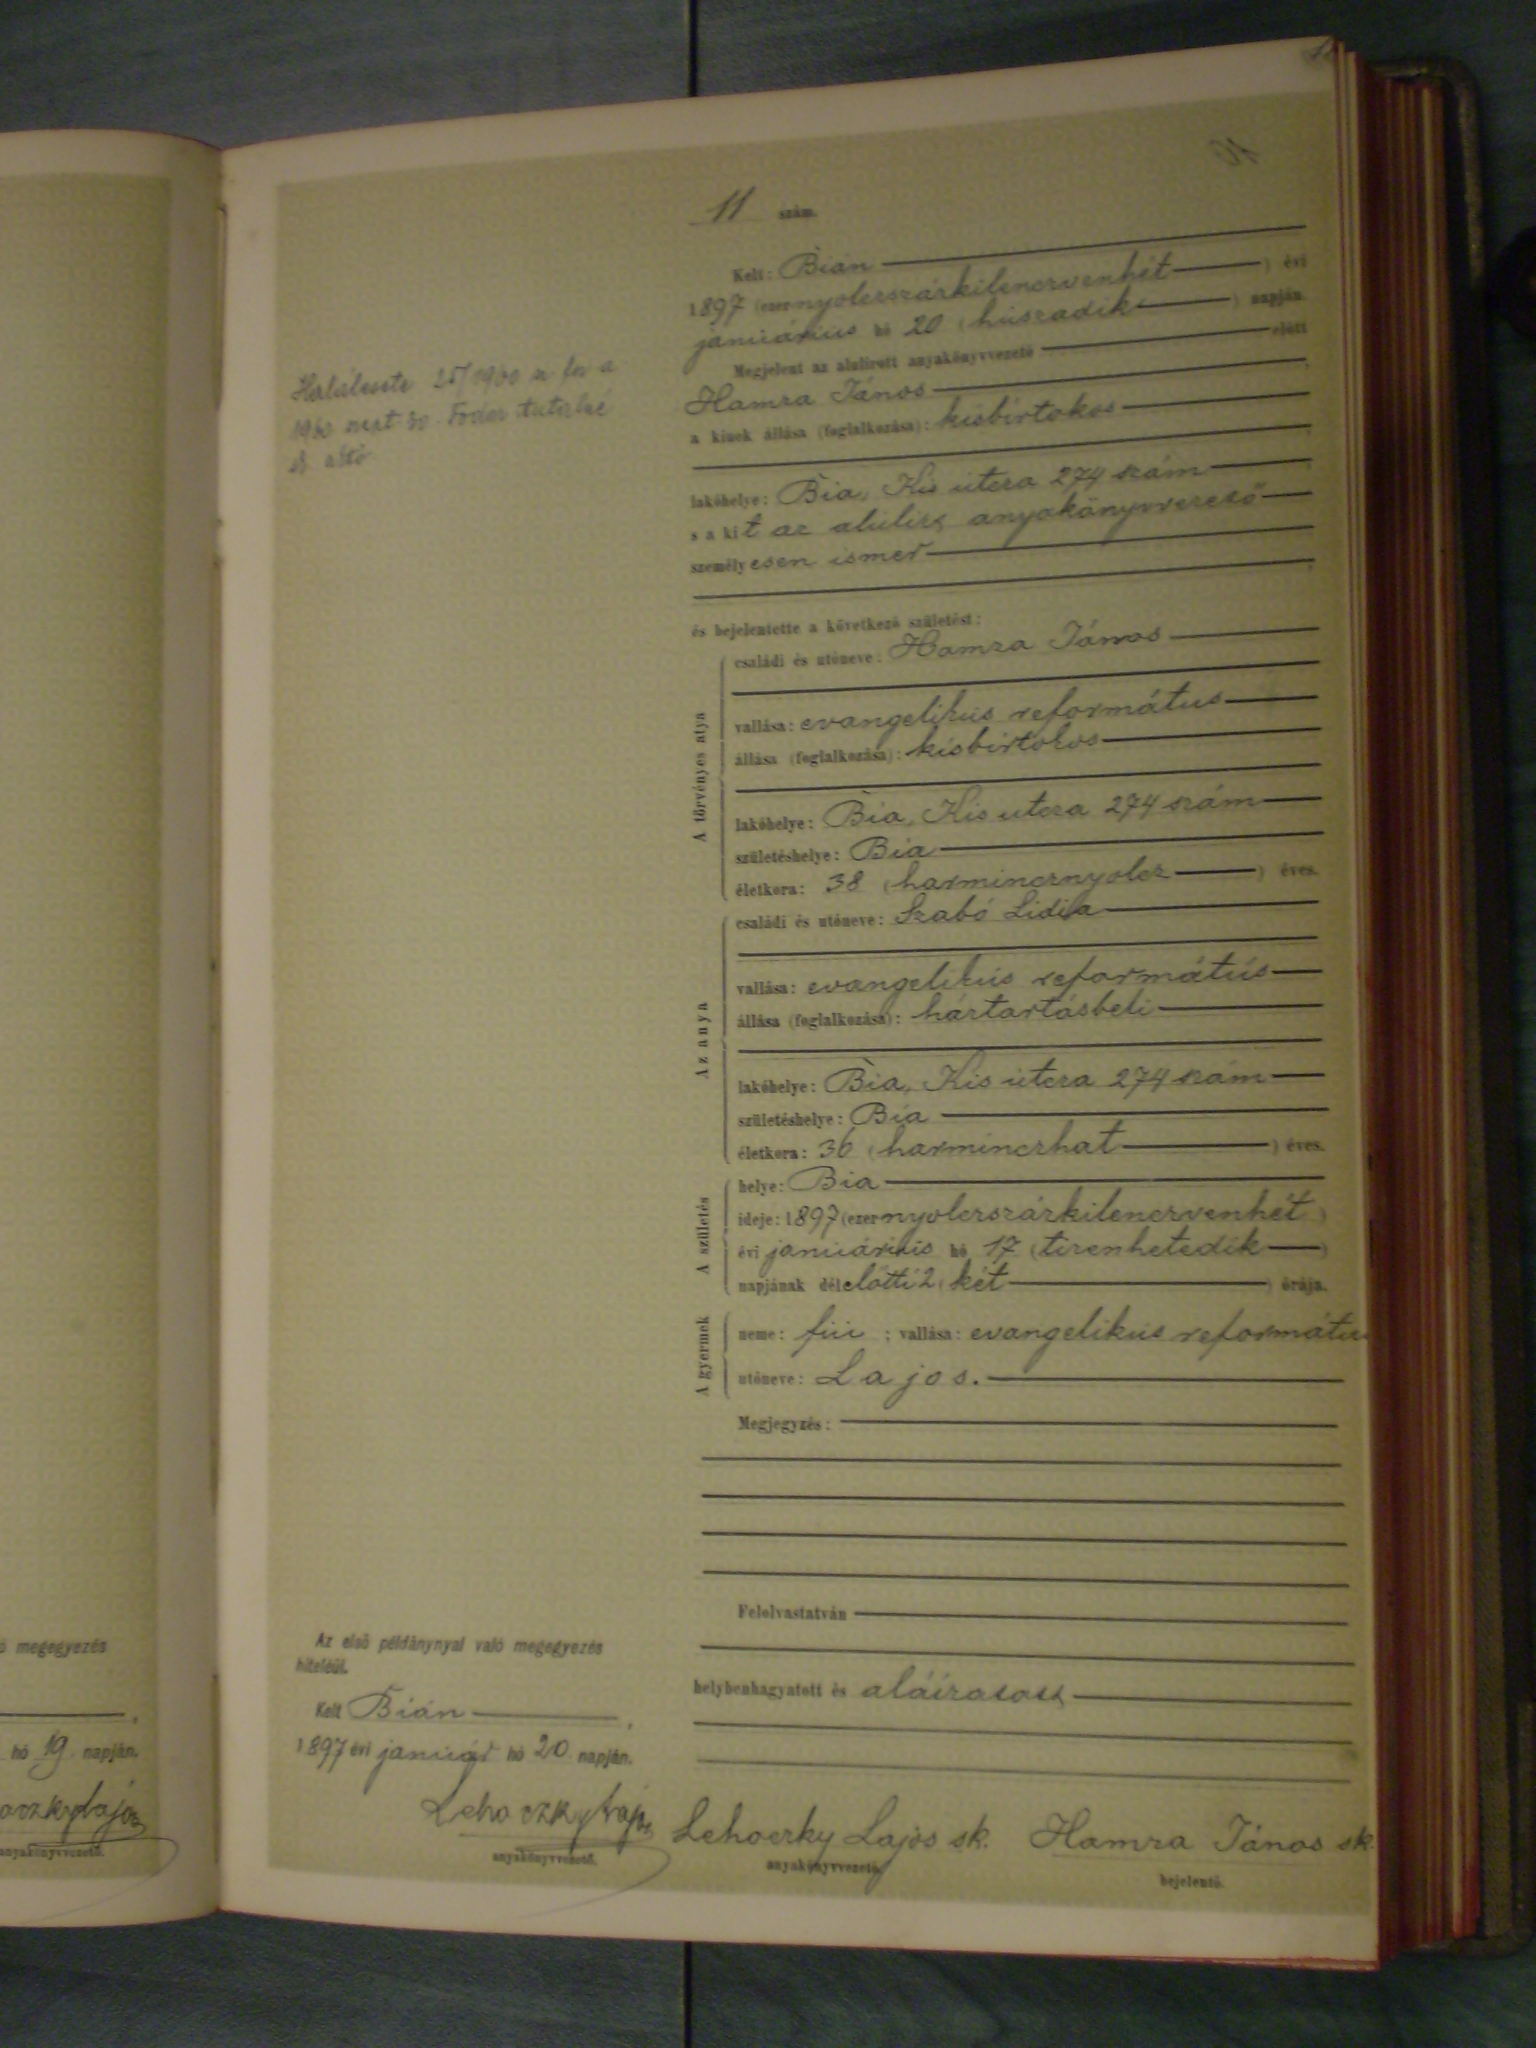 11 szám.
Kelt: Bián
1897 (ezernyolczszázkilenczvenhét) évi
januárius hó 20 (huszadik) napján.
Megjelent az alulirott anyakönyvvezető előtt
Hamza János
a kinek állása (foglalkozása): kisbirtokos
lakóhelye: Bia, Kis utcza 274 szám
s a kit az alulirt anyakönyvvezető
személyesen ismer
és bejelentette a következő születést:
A törvényes atya
családi és utóneve: Hamza János
vallása: evangelikus református
állása (foglalkozása): kisbirtokos
lakóhelye: Bia, Kis utcza 274 szám
születéshelye: Bia
életkora: 38 (harmincznyolcz) éves.
Az anya
családi és utóneve: Szabó Lidia
vallása: evangelikus református
állása (foglalkozása): háztartásbeli
lakóhelye: Bia, Kis utcza 274 szám
születéshelye: Bia
életkora: 36 (harminczhat) éves.
A születés
helye: Bia
ideje: 1897 (ezernyolczszázkilenczvenhét)
évi januárius hó 17 (tizenhetedik)
napjának délelőtti 2 (két) órája.
A gyermek
neme: fiu ; vallása: evangelikus református
utóneve: Lajos.
Megjegyzés:
Felolvastatván
helybenhagyatott és aláiratott
Lehoczky Lajos sk. Hamza János sk.
anyakönyvvezető. bejelentő.
Az első példánynyal való megegyezés
hiteléül.
Kelt Bián,
1897 évi január hó 20 napján.
Lehoczky Lajos
anyakönyvvezető.
megegyezés
hó 19 napján.
anyakönyvvezető.